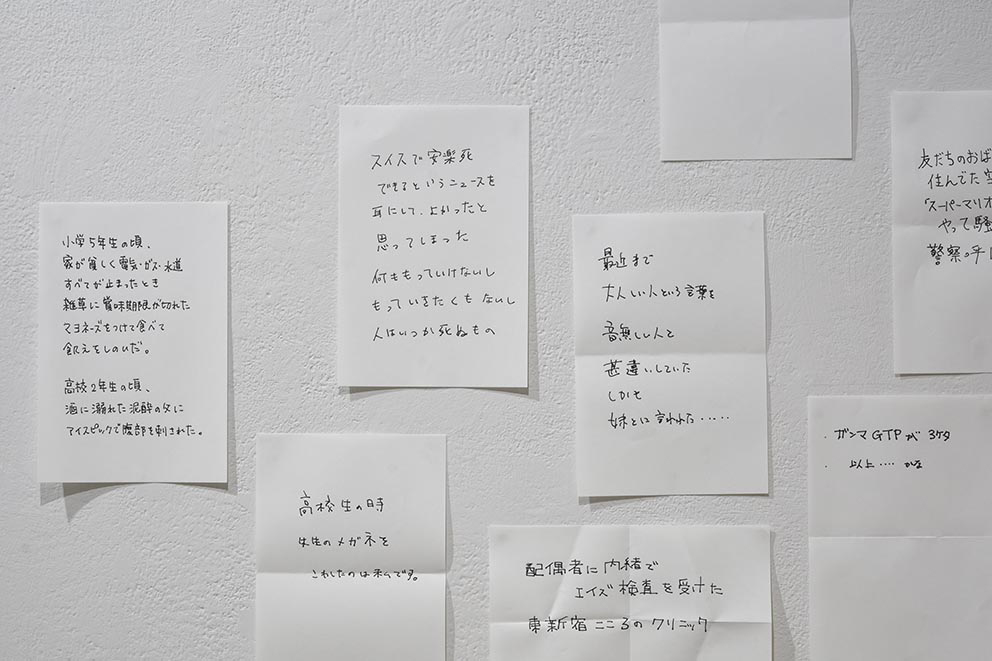 小学5年生の頃、
家が貧しく電気・ガス・水道
すべてが止まったとき
雑草に賞味期限が切れた
マヨネーズをつけて食べて
飢えをしのいだ。
高校2年生の頃、
酒に溺れた泥酔の父に
アイスピックで腹部を刺された。
スイスで安楽死
できるというニュースを
耳にして、よかったと
思ってしまった
何ももっていけないし
もっていきたくもないし
人はいつか死ぬもの
高校生の時
先生のメガネを
こわしたのは私です。
最近まで
大人しい人という言葉を
音無しい人と
甚違いしていた
しかも
妹とに言われた・・・・・
配偶者に内緒で
エイズ検査を受けた
東新宿こころのクリニック
友だちのおば
住んでた空
「スーパーマリオ
やって騒
警察の手
・ガンマGTPが3ケタ
・以上‥‥かな